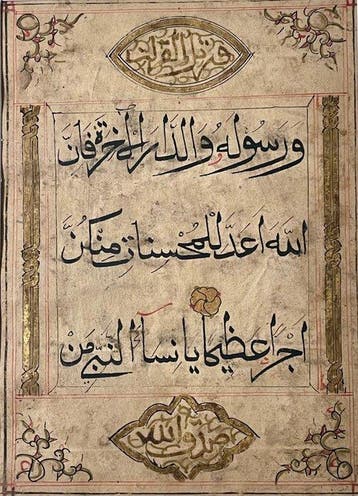 القران
ورسوله والدار الاخرة فانّ
الله اعدّ للمحسنات منكنّ
اجرا عظيما يا نسآ النبّي من
صدق الله